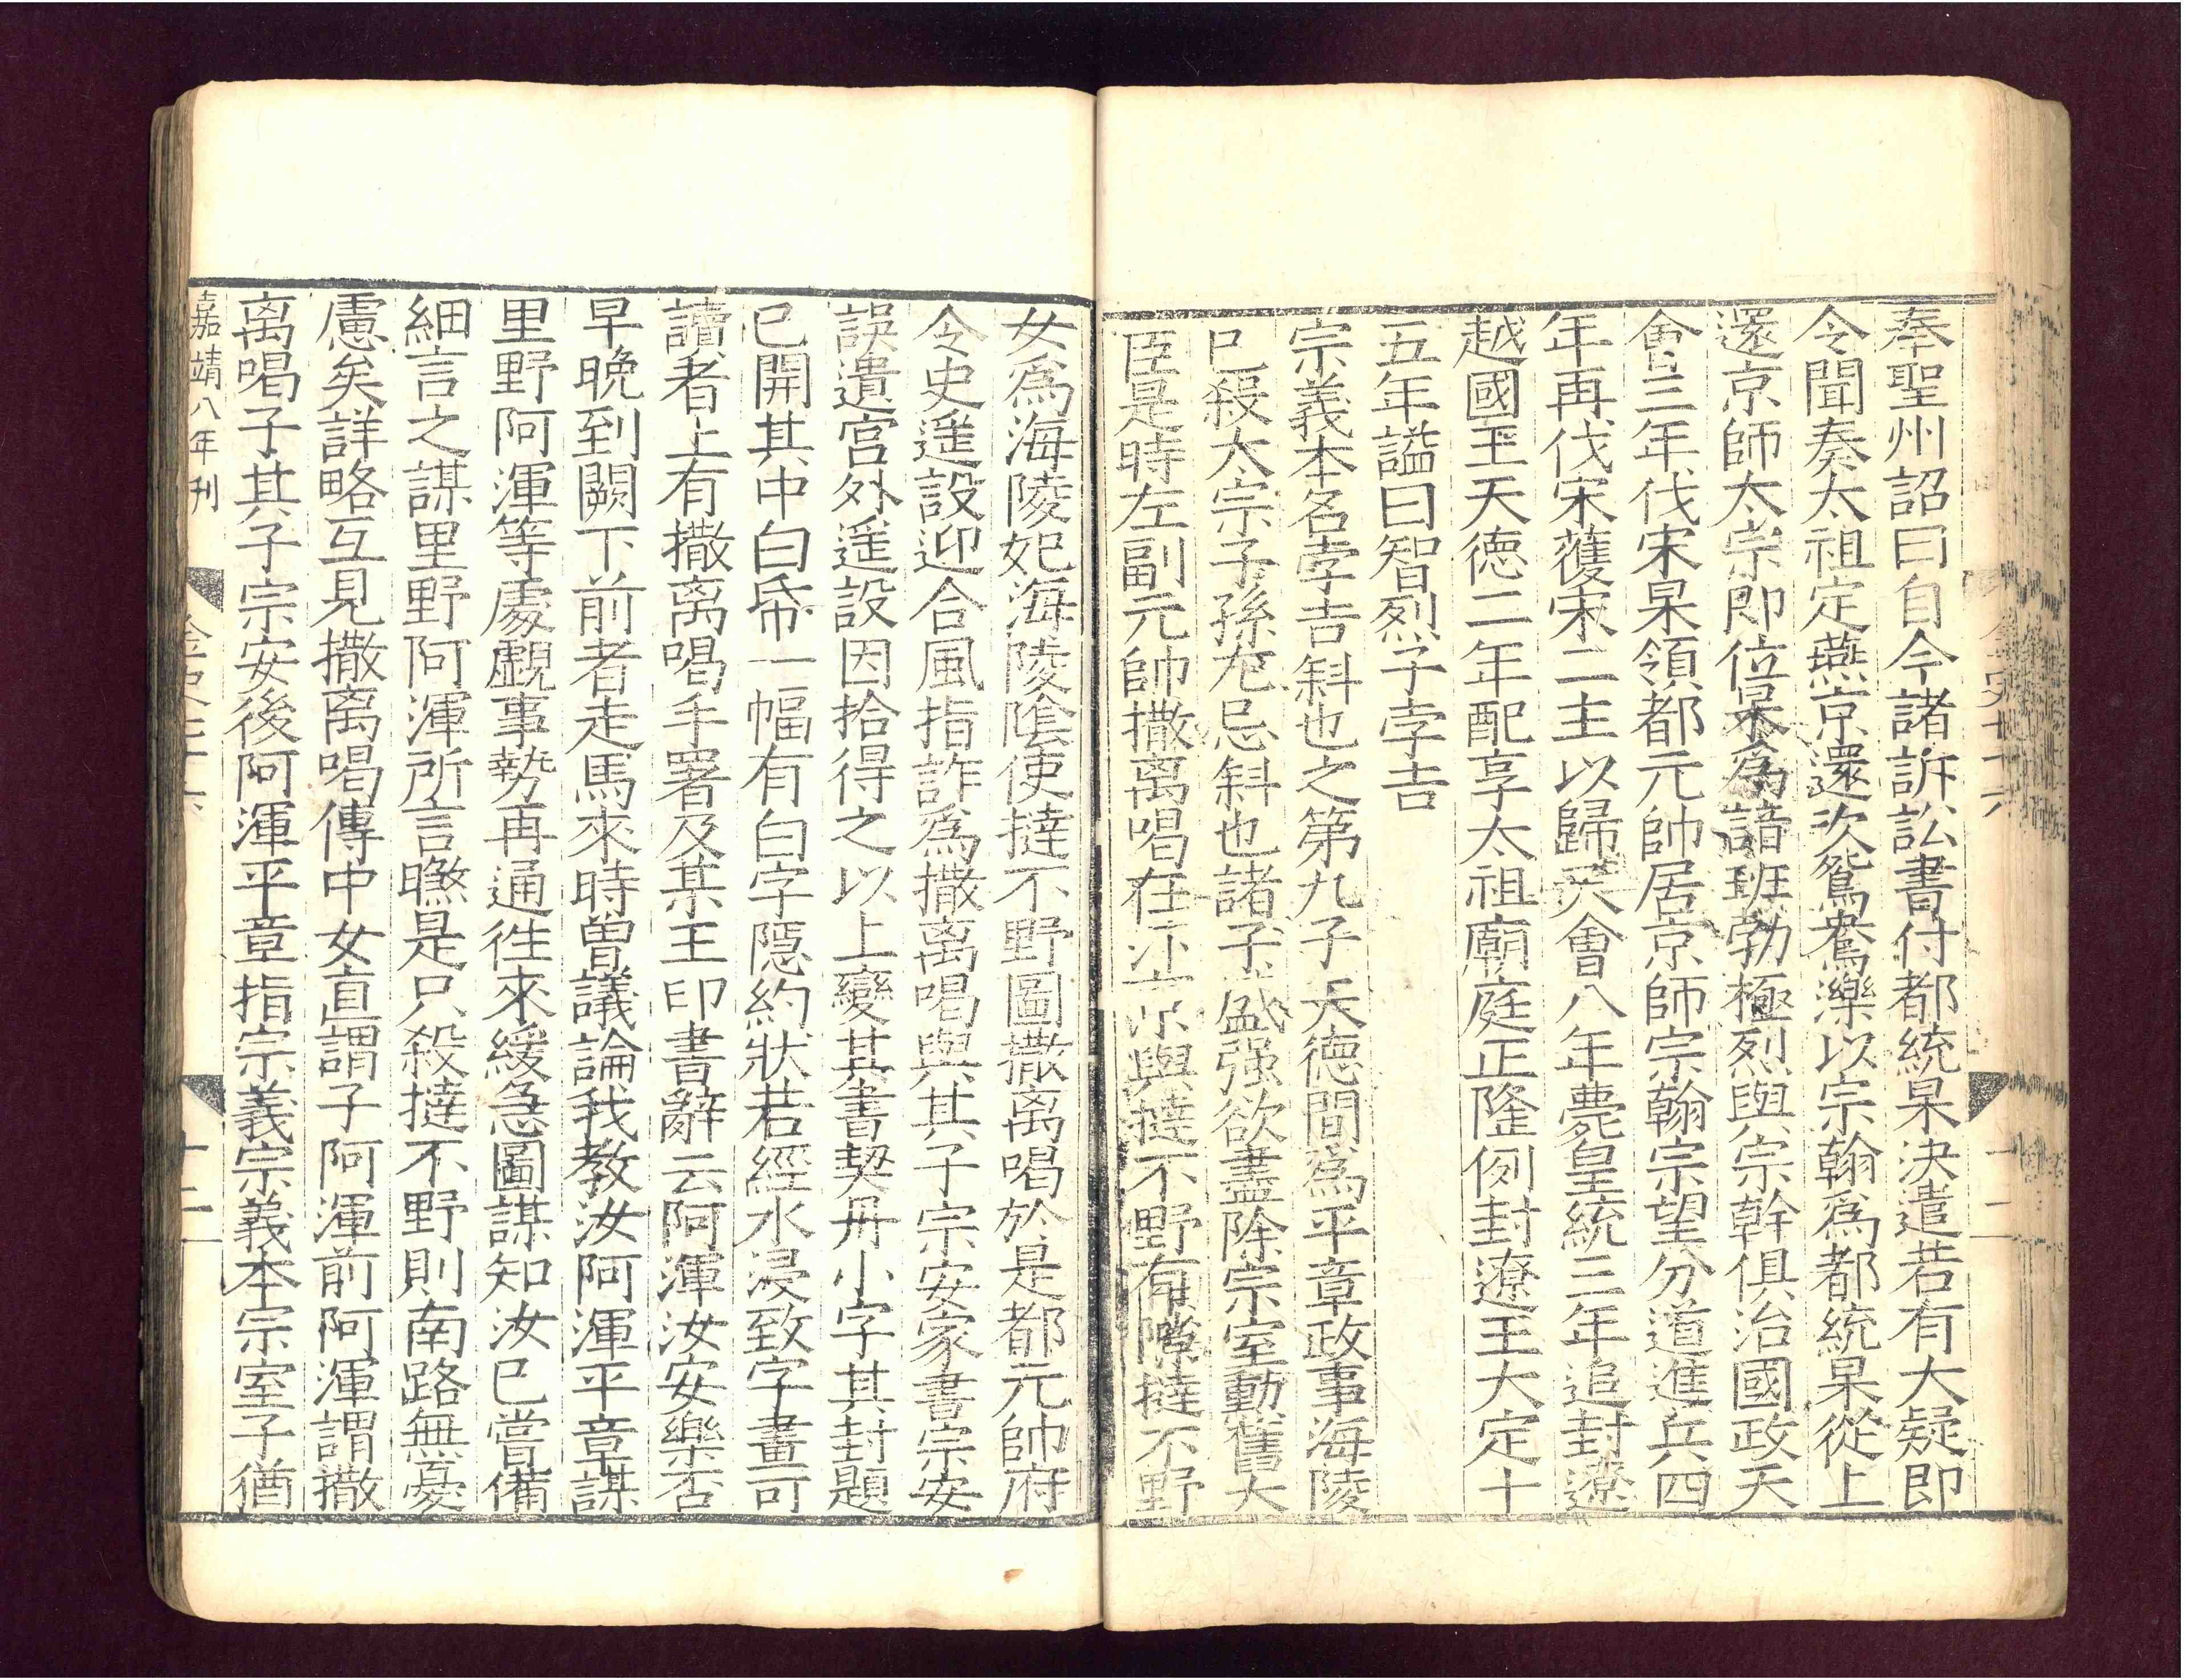 奉聖州詔曰自今諸訴訟書付都統杲決遣若有大疑即
令聞奏太祖定燕京還次鴛鴦濼以宗翰爲都統杲從上
還京師太宗即位杲爲諳班勃極烈與宗幹俱治國政天
會三年伐宋杲領都元帥居京師宗翰宗望分道進兵四
年再伐宋獲宋二主以歸天會八年薨皇統三年追封遼
越國王天德二年配享太祖廟庭正隆例封遼王大定十
五年謚曰智烈子孛吉
宗義本名孛吉斜也之第九子天德間爲平章政事海陵
已殺太宗子孫尤忌斜也諸子盛强欲盡除宗室勳舊大
臣是時左副元帥撒离喝在汴京與撻不野有隙撻不野
女爲海陵妃海陵陰使撻不野圖撒离喝於是都元帥府
令史遥設迎合風指詐爲撒离喝與其子宗安家書宗安
誤遺宫外遥設因拾得之以上變其書契丹小字其封題
已開其中白帋一幅有白字隱約狀若經水浸致字畫可
讀者上有撒离喝手署及某王印書辭云阿渾汝安樂否
早晚到闕下前者走馬來時曽議論我教汝阿渾平章謀
里野阿渾等處覷事勢再通徃來緩急圖謀知汝已嘗備
細言之謀里野阿渾所言瞧是只殺撻不野則南路無憂
慮矣詳略互見撒离喝傳中女直謂子阿渾前阿渾謂撒
离喝子其子宗安後阿渾平章指宗義宗義本宗室子猶
嘉靖八年刊
金史七十六
十二